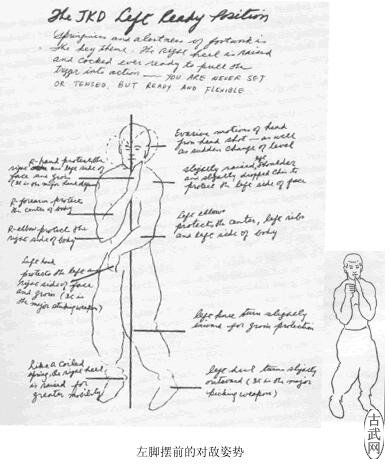 The JKD Left Ready Position
Springiness and alertness of footwork is
the key theme. The right heel is raised
and cocked ever ready to pull the
trigger into action — YOU ARE NEVER SET
OR TENSED, BUT READY AND FLEXIBLE
Evasive motions of head
from head shot — as well
as sudden change of level
R-hand protect the
right and left side of
face and groin
(It is the major hand guard)
slightly raised shoulder
and slightly dropped chin to
protect the left side of face
R-forearm protect
the center of body
R-elbow protect the
right side of body
Left elbow
protects the center, left ribs
and left side of body
Left hand
protects the left and
right side of face
and groin (It is
the major striking weapon)
left knee turn slightly
inward for groin protection
Like a coiled
spring, the right heel
is raised for
greater mobility
left heel turns slightly
outward (It is the major
kicking weapon)
古武网
左脚摆前的对敌姿势